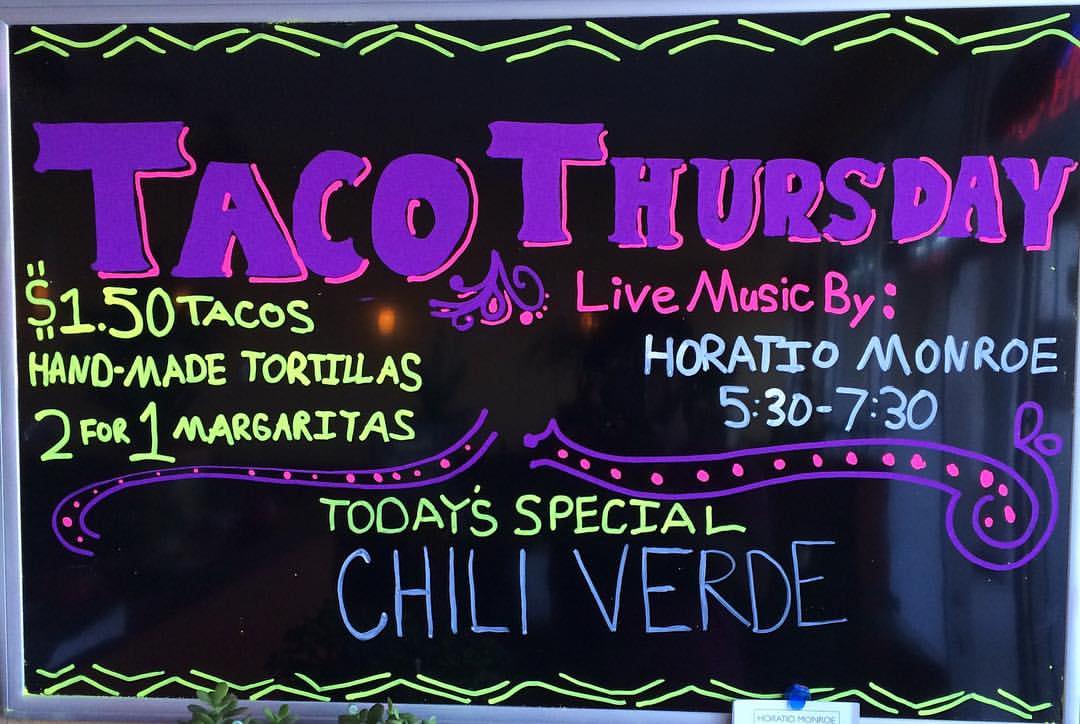 TACO THURSDAY
$1.50 TACOS
HAND-MADE TORTILLAS
2 FOR 1 MARGARITAS
Live Music By:
HORATIO MONROE
5:30-7:30
TODAY'S SPECIAL
CHILI VERDE
HORATIO MONROE